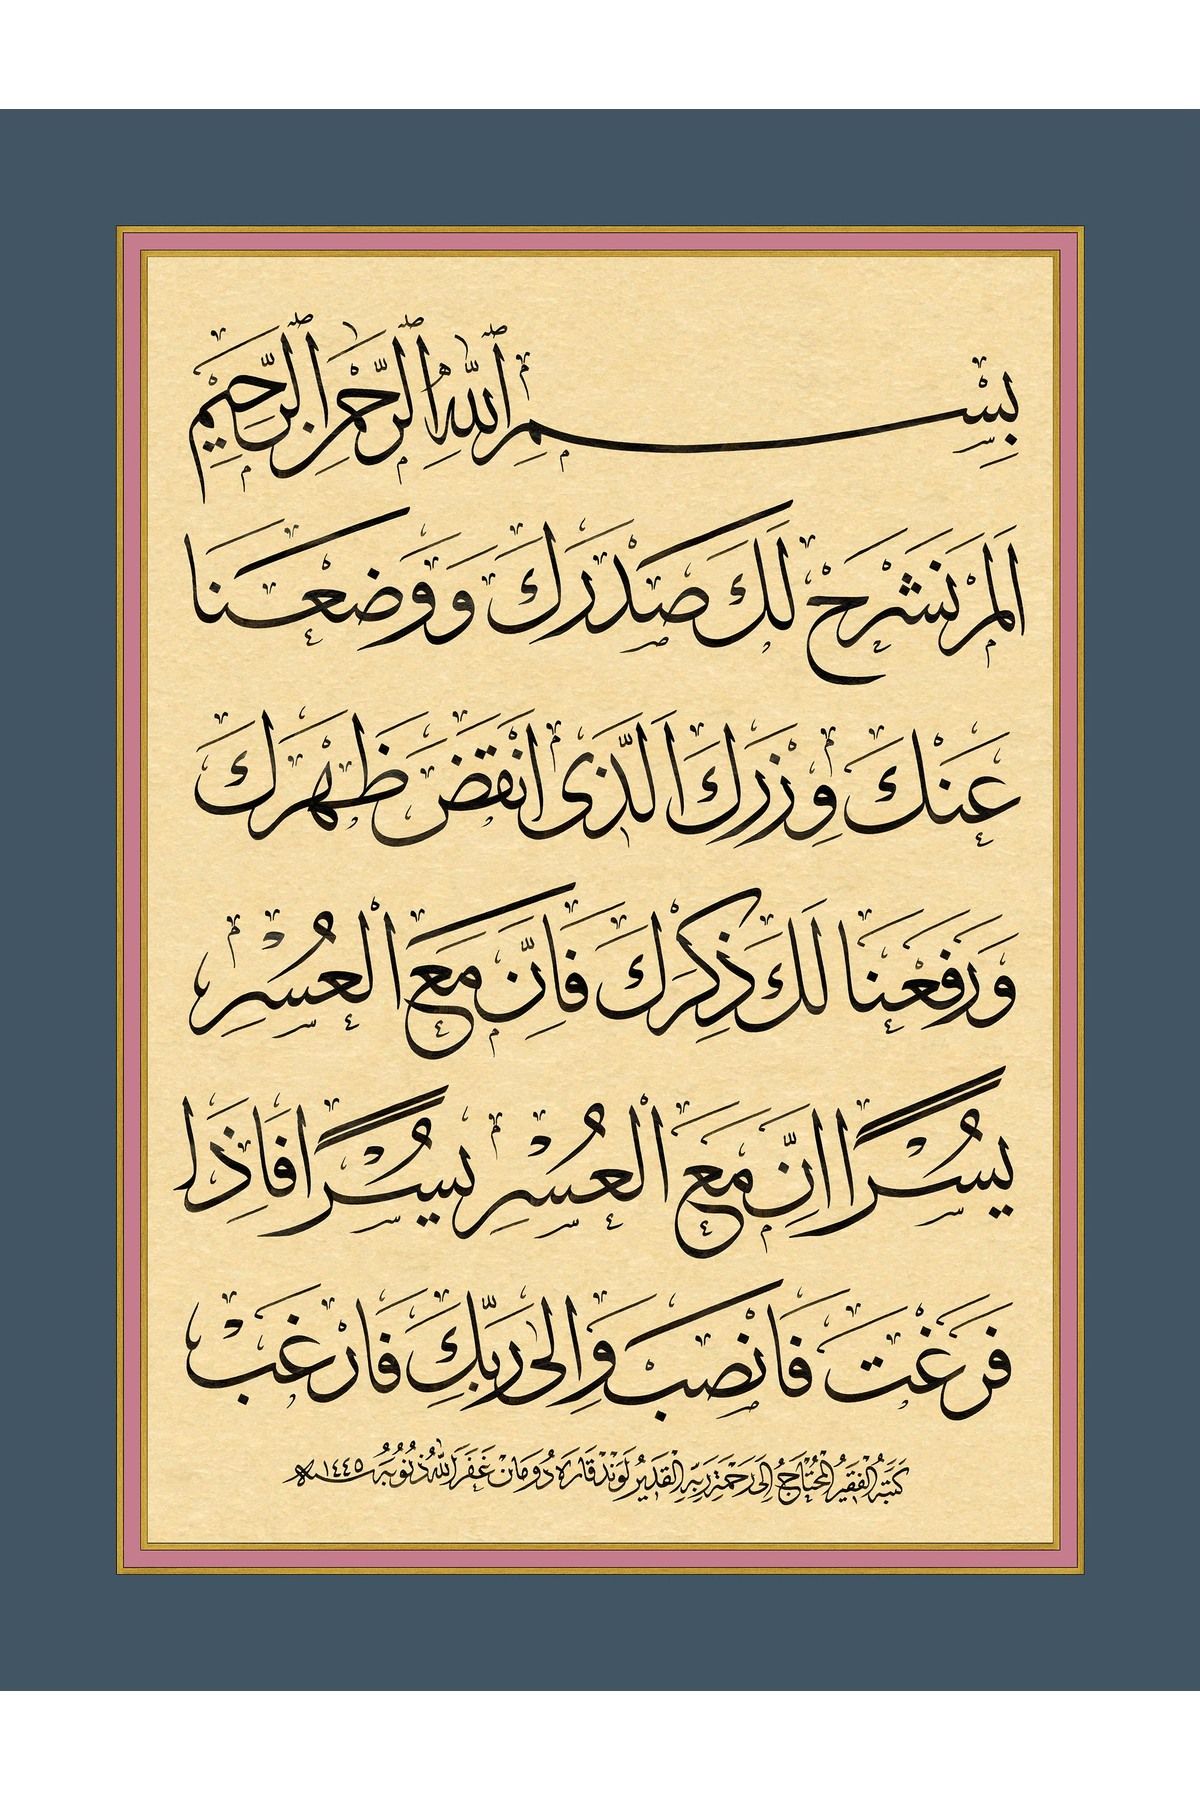 بِسْمِ اللّٰهِ الرَّحْمٰنِ الرَّحِيمِ
اَلَمْ نَشْرَحْ لَكَ صَدْرَكَ وَوَضَعْنَا
عَنْكَ وِزْرَكَ اَلَّذِى اَنْقَضَ ظَهْرَكَ
وَرَفَعْنَا لَكَ ذِكْرَكَ فَاِنَّ مَعَ الْعُسْرِ
يُسْرًا اِنَّ مَعَ الْعُسْرِ يُسْرًا فَاِذَا
فَرَغْتَ فَانْصَبْ وَاِلٰى رَبِّكَ فَارْغَبْ
كَتَبَهُ الْفَقِيرُ الْمُحْتَاجُ اِلَى رَحْمَةِ رَبِّهِ الْقَدِيرِ لَوَنْدْ قَارَه دُومَانْ غَفَرَ اللّٰهُ ذُنُوبَهُ ١٤٤٥